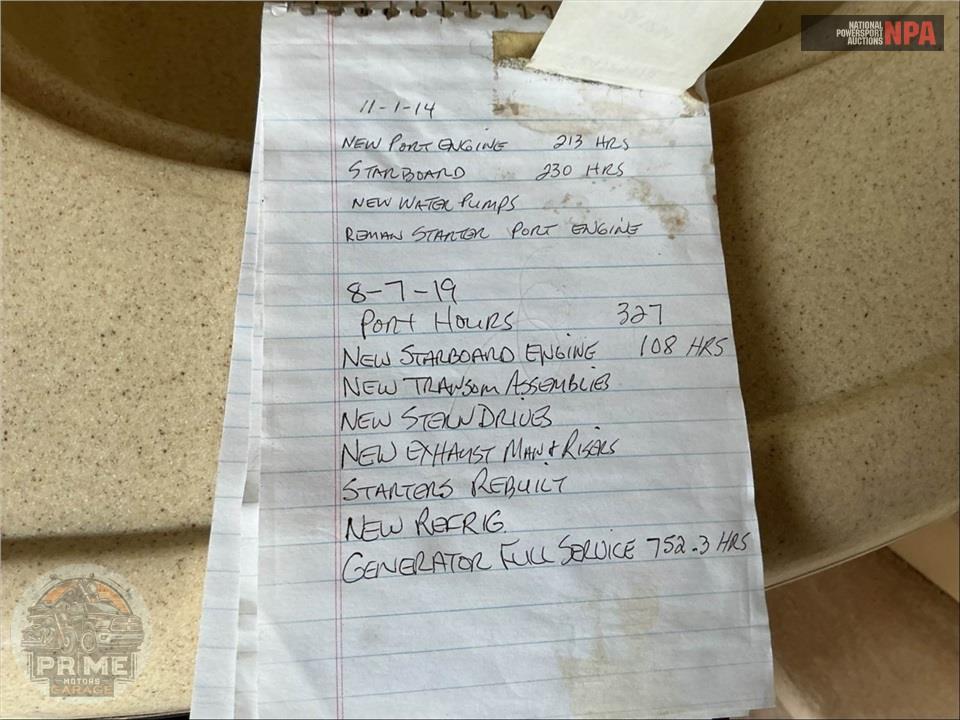 NATIONAL
POWERSPORT
AUCTIONS
NPA
11-1-14
NEW PORT ENGINE 213 HRS
STARBOARD 230 HRS
NEW WATER PUMPS
REMAN STARTER PORT ENGINE
8-7-19
PORT HOURS 327
NEW STARBOARD ENGINE 108 HRS
NEW TRANSOM ASSEMBLIES
NEW STERN DRIVES
NEW EXHAUST MAN & RISERS
STARTERS REBUILT
NEW REFRIG
GENERATOR FULL SERVICE 752.3 HRS
PRIME
MOTORS
GARAGE